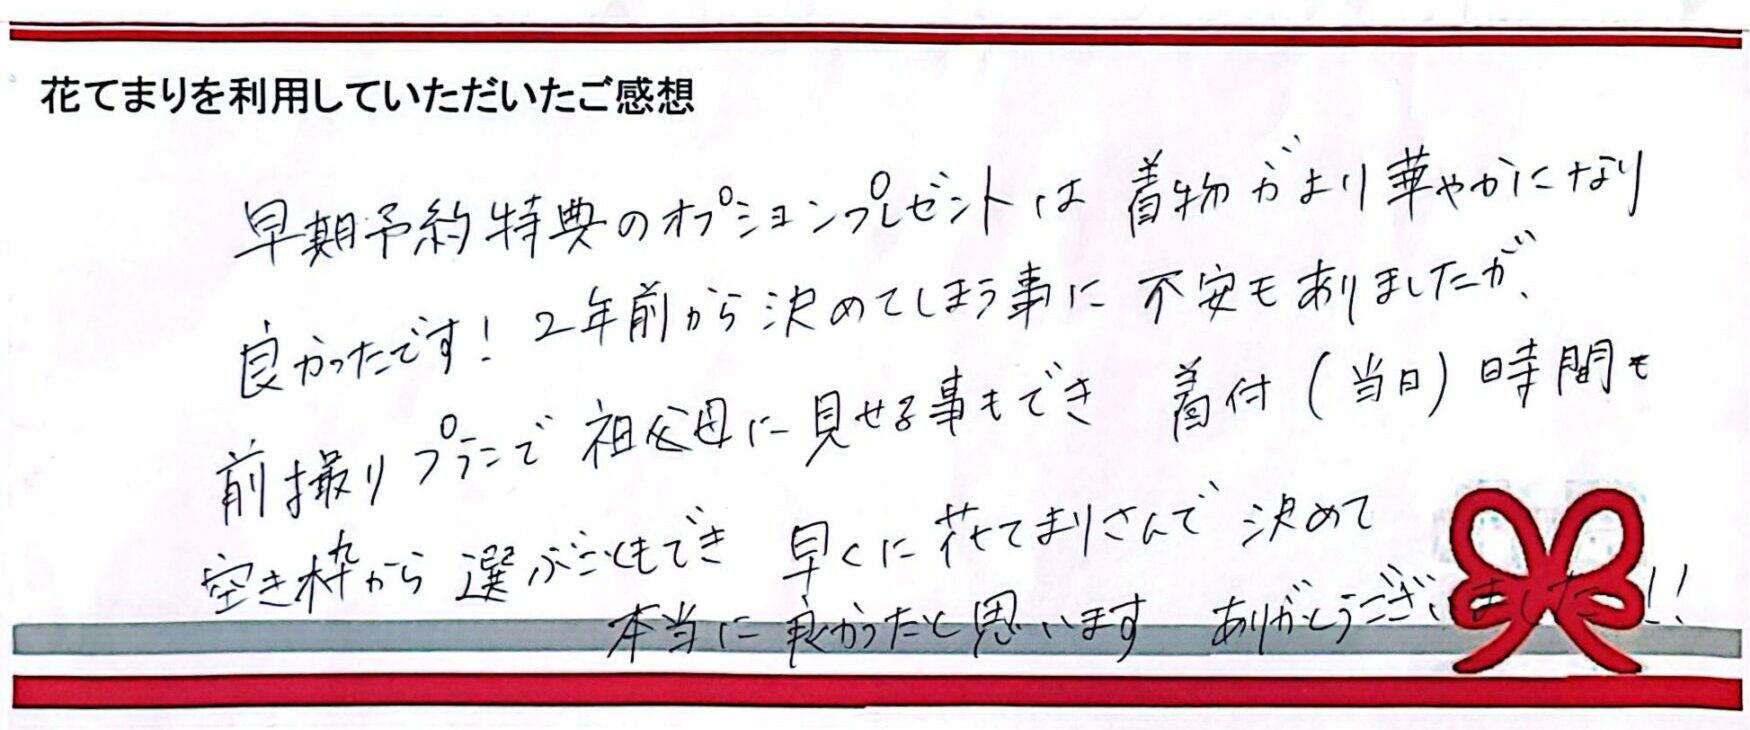 花てまりを利用していただいたご感想
早期予約特典のオプションプレゼントは 着物がより華やかになり
良かったです！ 2年前から決めてしまう事に 不安もありましたが、
前撮りプランで 祖父母に見せる事もでき 着付(当日)時間も
空き枠から 選ぶこともでき 早くに花てまりさんで 決めて
本当に良かったと思います ありがとうございました!!